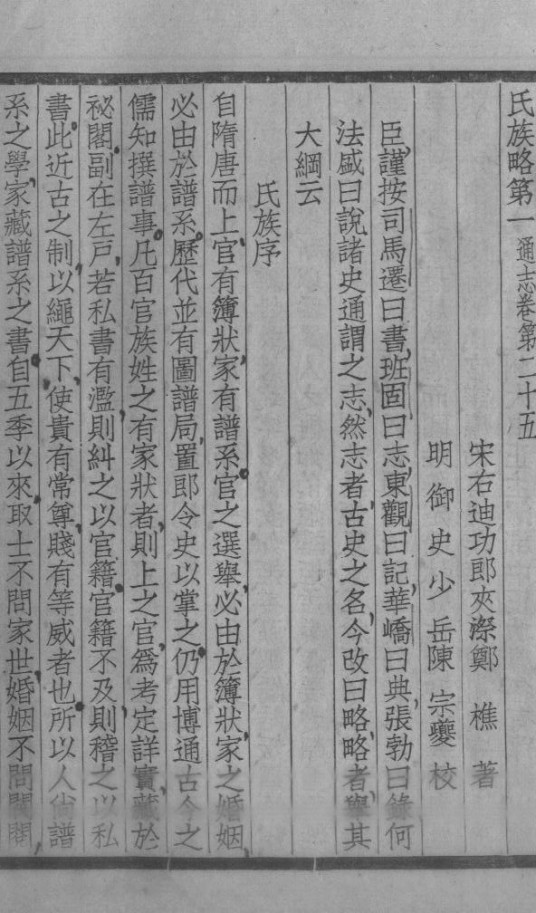 氏族略第一 通志卷第二十五
宋右迪功郎夾漈鄭樵著
明御史少岳陳宗夔校
臣謹按司馬遷曰書班固曰志東觀曰記華嶠曰典張勃曰錄何
法盛曰說諸史通謂之志然志者古史之名今改曰略略者舉其
大綱云
氏族序
自隋唐而上官有簿狀家有譜系官之選舉必由於簿狀家之婚姻
必由於譜系歷代並有圖譜局置郎令史以掌之仍用博通古今之
儒知撰譜事凡百官族姓之有家狀者則上之官為考定詳實藏於
祕閣副在左戶若私書有濫則糾之以官籍官籍不及則稽之以私
書此近古之制以繩天下使貴有常尊賤有等威者也所以人尙譜
系之學家藏譜系之書自五季以來取士不問家世婚姻不問閥閱